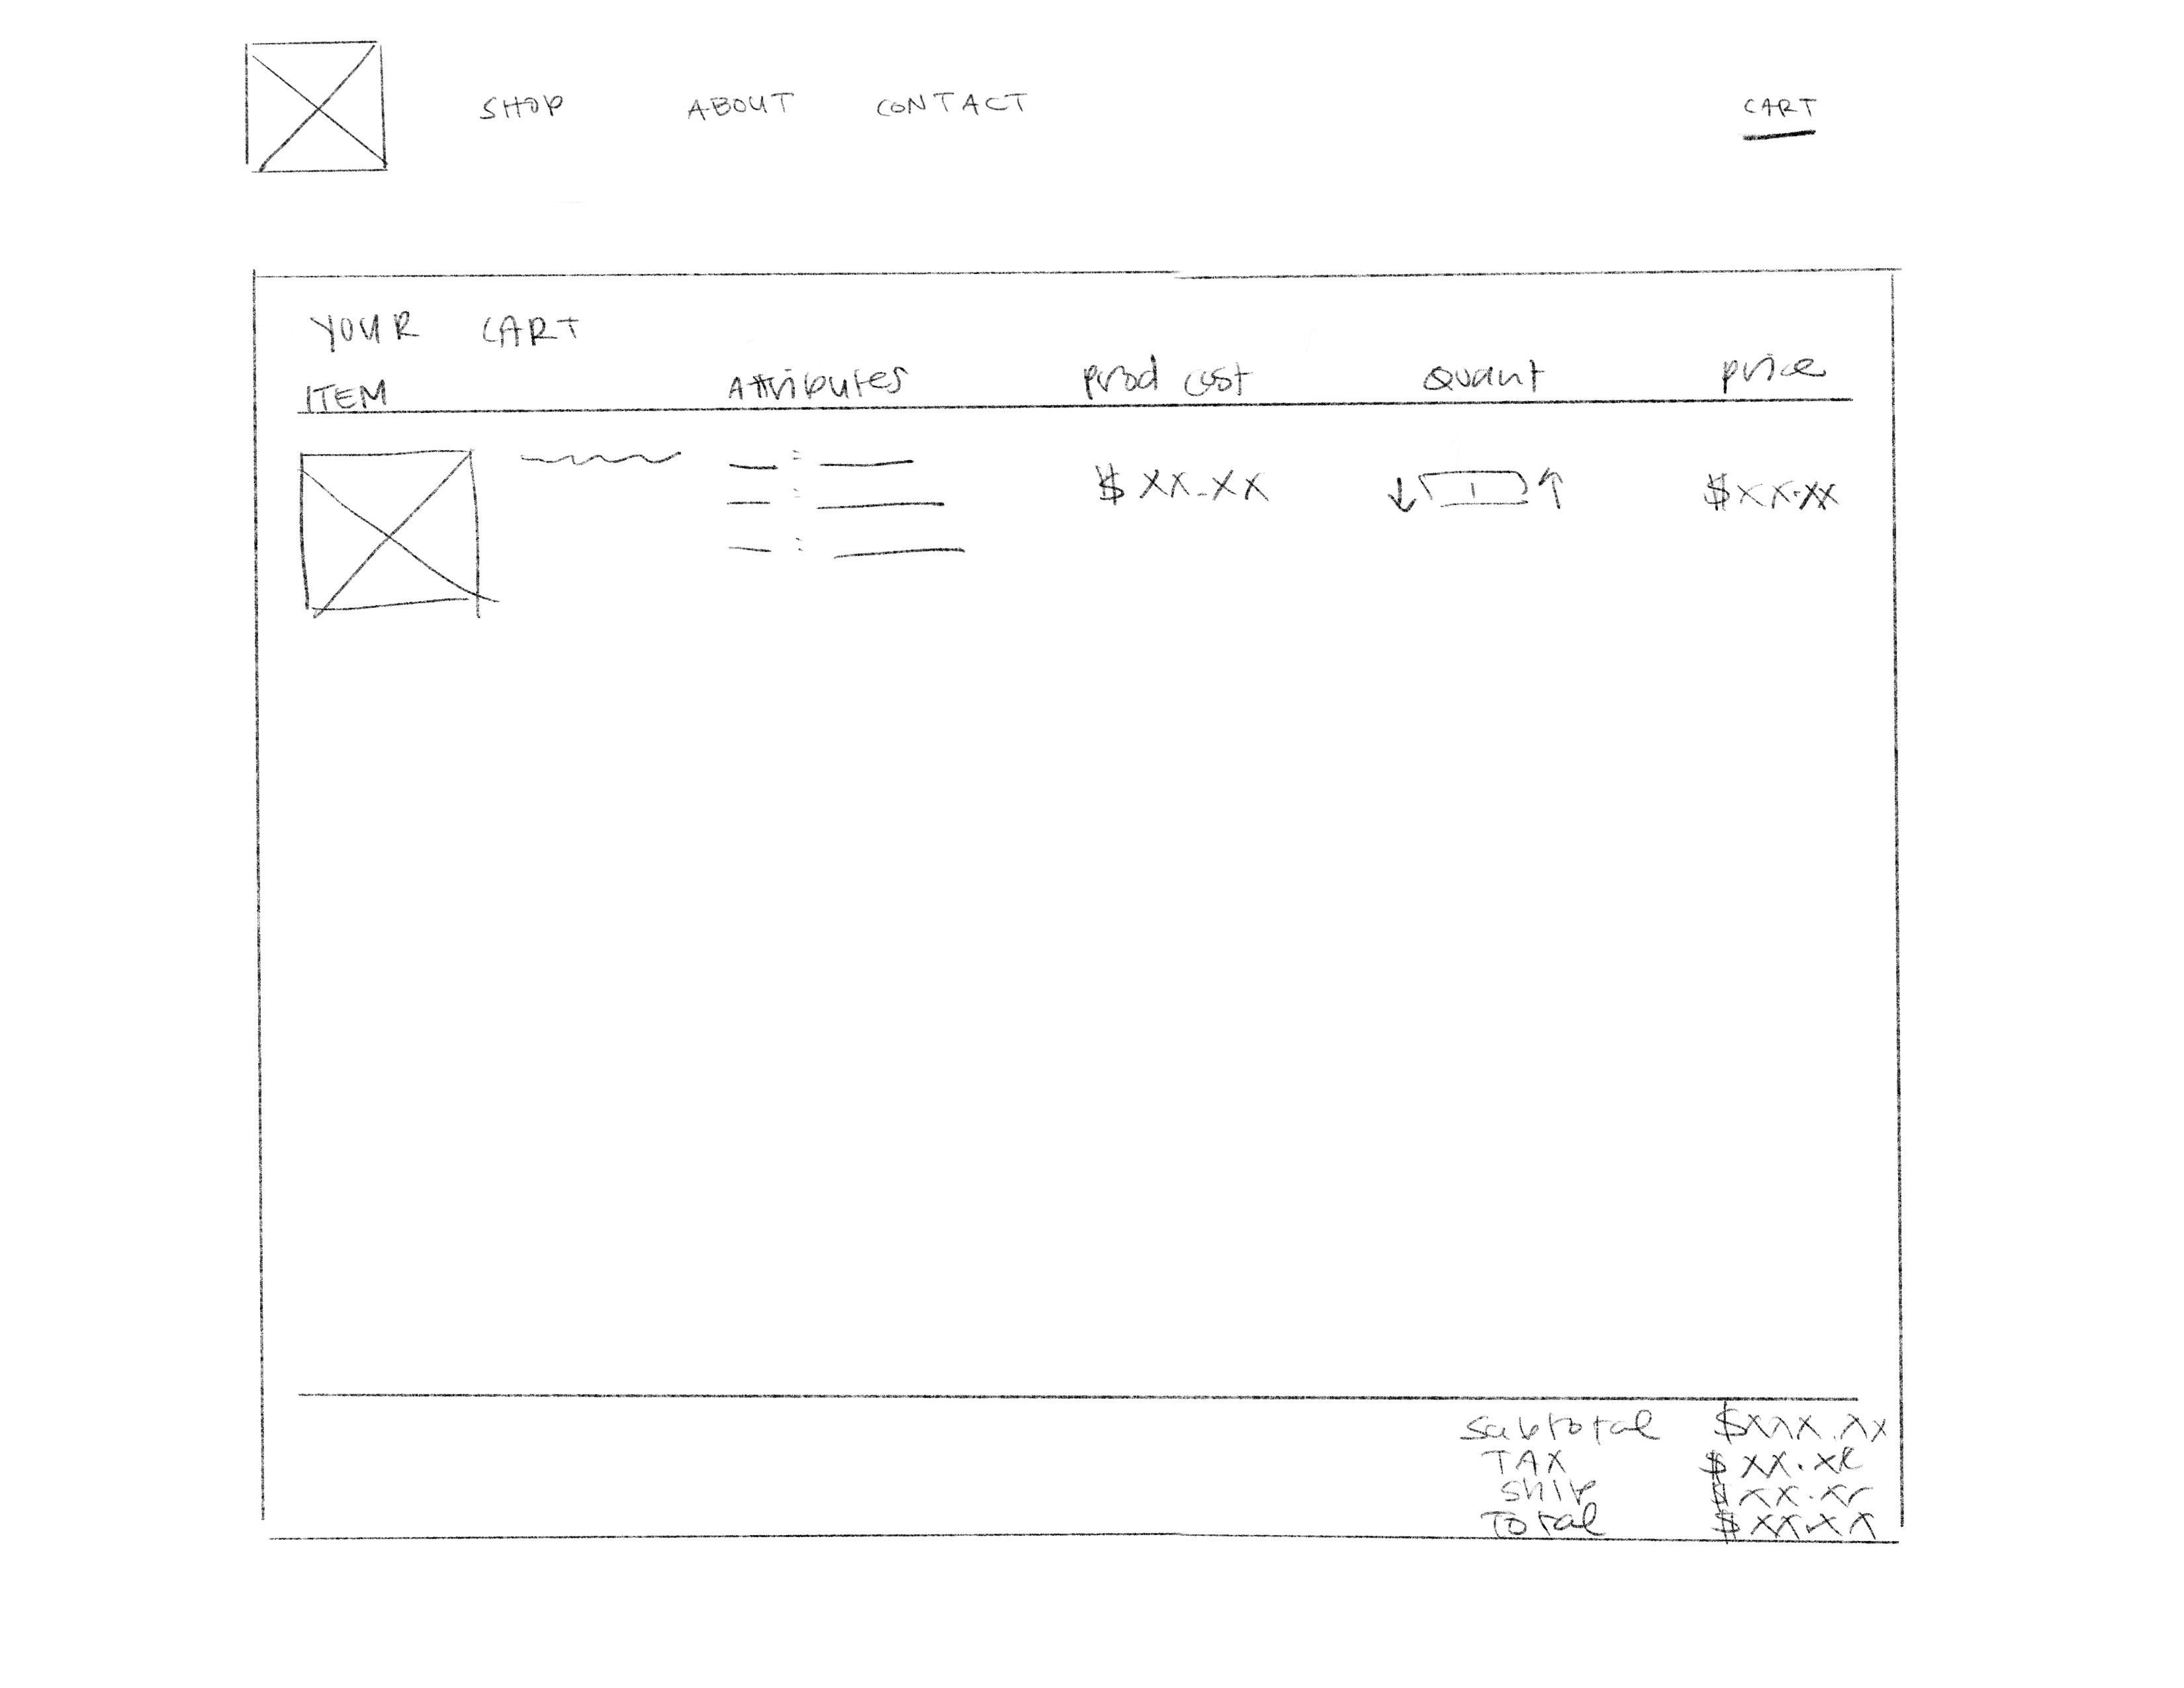 SHOP ABOUT CONTACT CART
YOUR CART
ITEM Attributes prod cost Quant price
: $XX.XX ↓ 1 ↑ $XX.XX
:
:
Subtotal $XXX.XX
TAX $XX.XX
Ship $XX.XX
Total $XX.XX